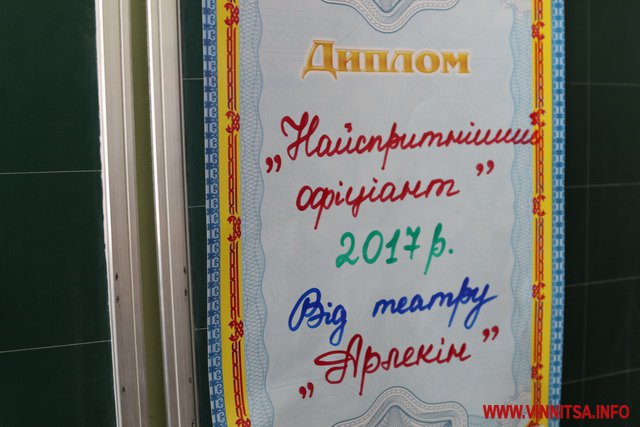 Диплом
„Найспритніший
офіціант"
2017 р.
Від театру
„Арлекін"
WWW.VINNITSA.INFO